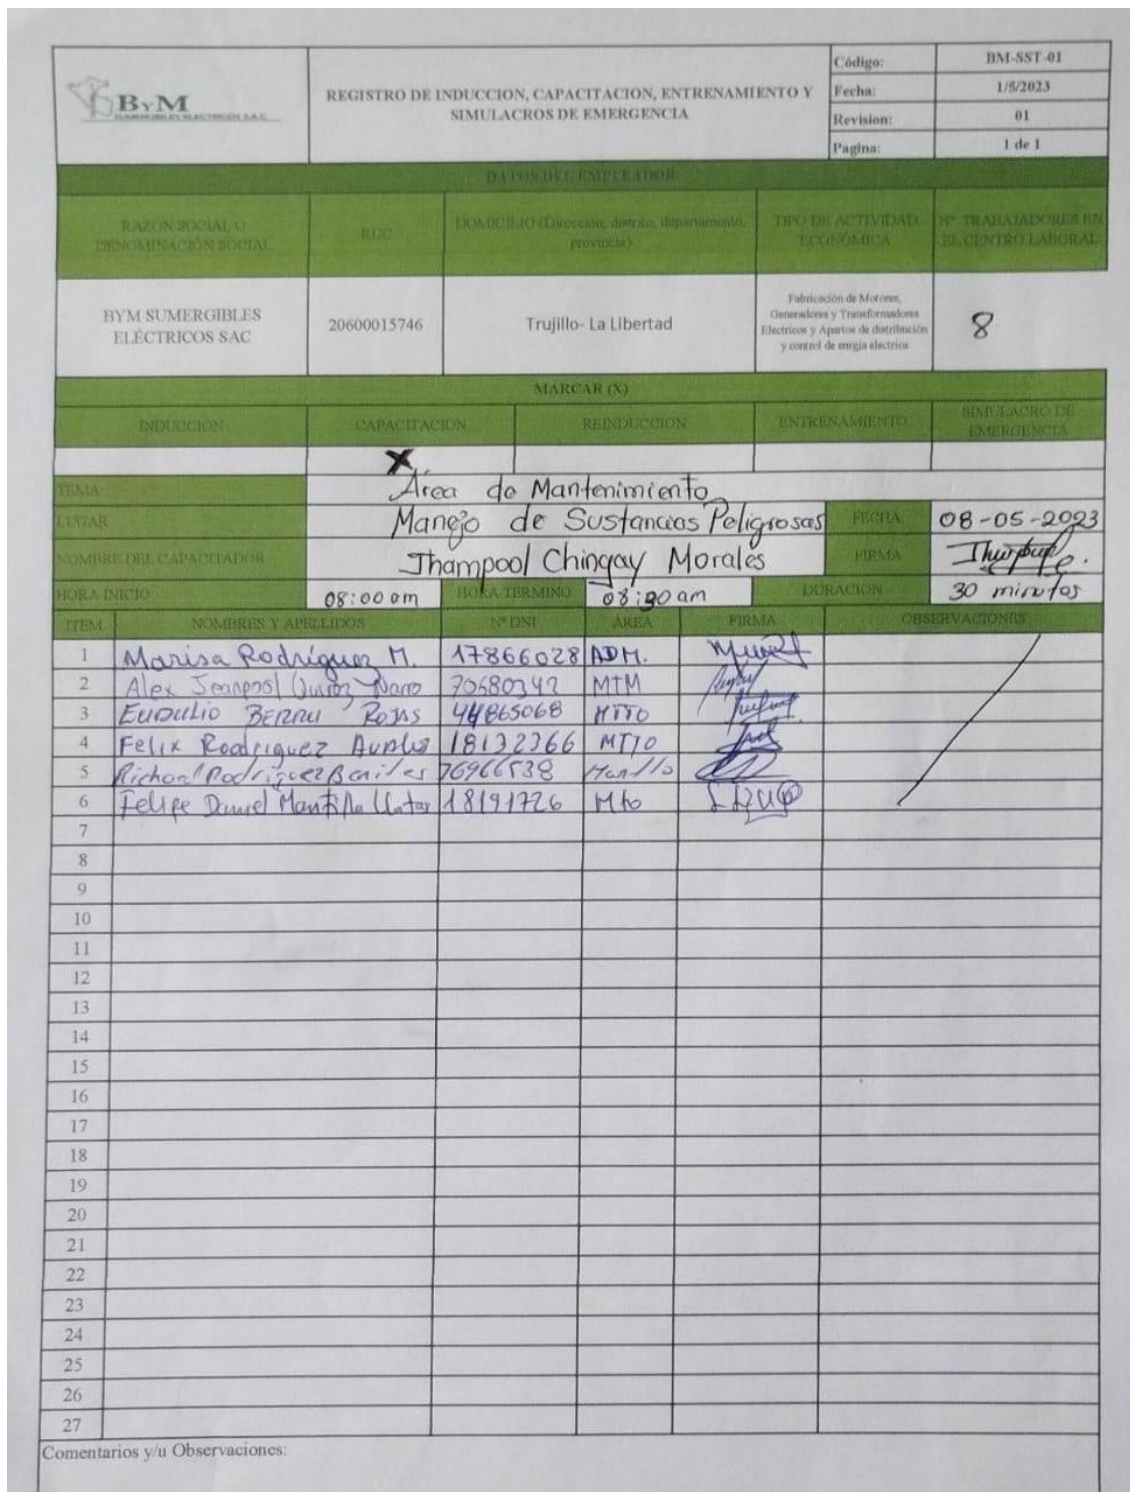 BYM
SUMERGIBLES ELECTRICOS S.A.C.
REGISTRO DE INDUCCION, CAPACITACION, ENTRENAMIENTO Y
SIMULACROS DE EMERGENCIA
Código: BM-SST-01
Fecha: 1/5/2023
Revision: 01
Pagina: 1 de 1
DATOS DEL EMPLEADOR
RAZÓN SOCIAL O
DENOMINACIÓN SOCIAL
RUC
DOMICILIO (Direccion, distrito, departamento,
provincia)
TIPO DE ACTIVIDAD
ECONÓMICA
N° TRABAJADORES EN
EL CENTRO LABORAL
BYM SUMERGIBLES
ELÉCTRICOS SAC
20600015746
Trujillo- La Libertad
Fabricación de Motores,
Generadores y Transformadores
Electricos y Apartos de distribución
y control de enrgia electrica
8
MARCAR (X)
INDUCCION CAPACITACION REINDUCCION ENTRENAMIENTO SIMULACRO DE
EMERGENCIA
X
TEMA Área de Mantenimiento
LUGAR Manejo de Sustancias Peligrosas FECHA 08-05-2023
NOMBRE DEL CAPACITADOR Jhampool Chingay Morales FIRMA
HORA INICIO 08:00 am HORA TERMINO 08:30 am DURACION 30 minutos
ITEM NOMBRES Y APELLIDOS N° DNI ÁREA FIRMA OBSERVACIONES
1 Marisa Rodríguez M. 17866028 ADM.
2 Alex Jeanpool Quiroz Narro 70680342 MTM
3 EUDULIO BERRU ROJAS 44865068 MTTO
4 Felix Rodriguez 18132366 MTTO
5 Richard Rodríguez Benites 76966538
6 Felipe Daniel Mantilla 18191726 Mto
7
8
9
10
11
12
13
14
15
16
17
18
19
20
21
22
23
24
25
26
27
Comentarios y/u Observaciones: